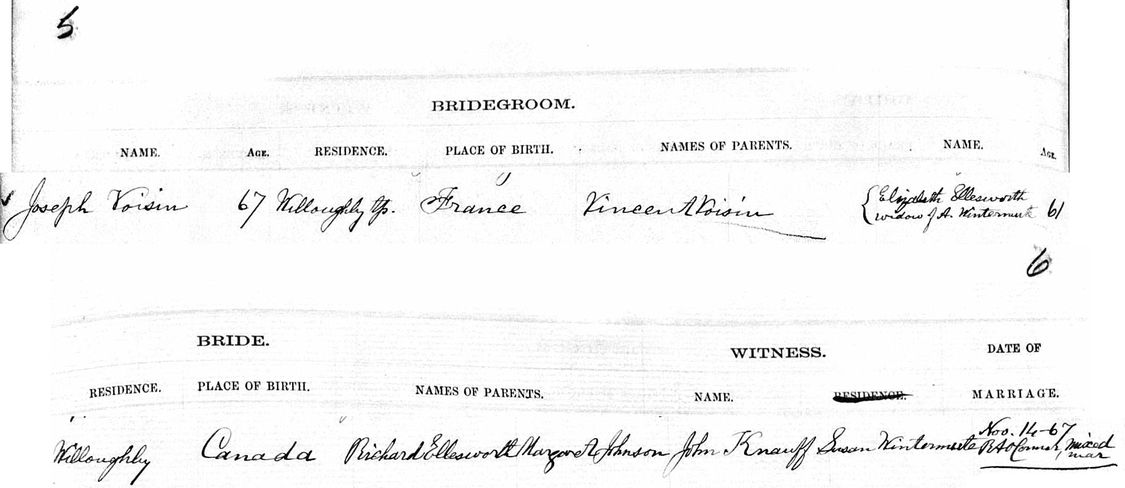 5
BRIDEGROOM.
NAME. AGE. RESIDENCE. PLACE OF BIRTH. NAMES OF PARENTS. NAME. AGE.
Joseph Voisin 67 Willoughby tp. France Vincent Voisin { Elizabeth Ellesworth 61
widow of A. Wintermute
6
BRIDE.
WITNESS.
DATE OF
RESIDENCE. PLACE OF BIRTH. NAMES OF PARENTS. NAME. RESIDENCE. MARRIAGE.
Nov. 14-67
Willoughby Canada Richard Ellesworth Margaret Johnson John Knauff Susan Wintermute R A O'Connor, mixed
mar